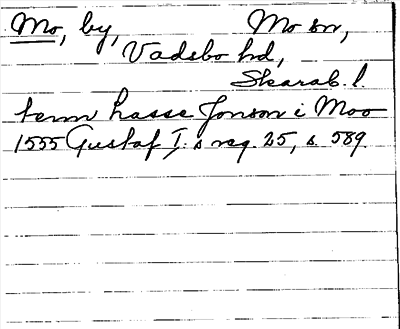 Mo, by, Mo sn,
Vadsbo hd,
Skarab. l.
tem Lasse Jonson i Moo
1555 Gustaf I:s reg. 25, s. 589.